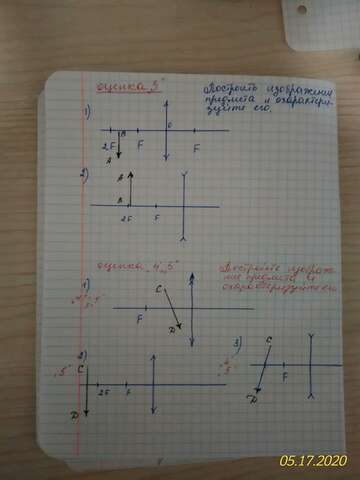 оценка „3"
Построить изображение
предмета и охарактери-
зуйте его.
1)
2F
B
A
F
O
F
2)
A
B
2F
F
оценка „4", „5"
Построить изображе-
ние предмета и
охарактеризуйте его
1)
F
C
D
2)
„5"
C
D
2F
F
3)
C
D
F
05.17.2020